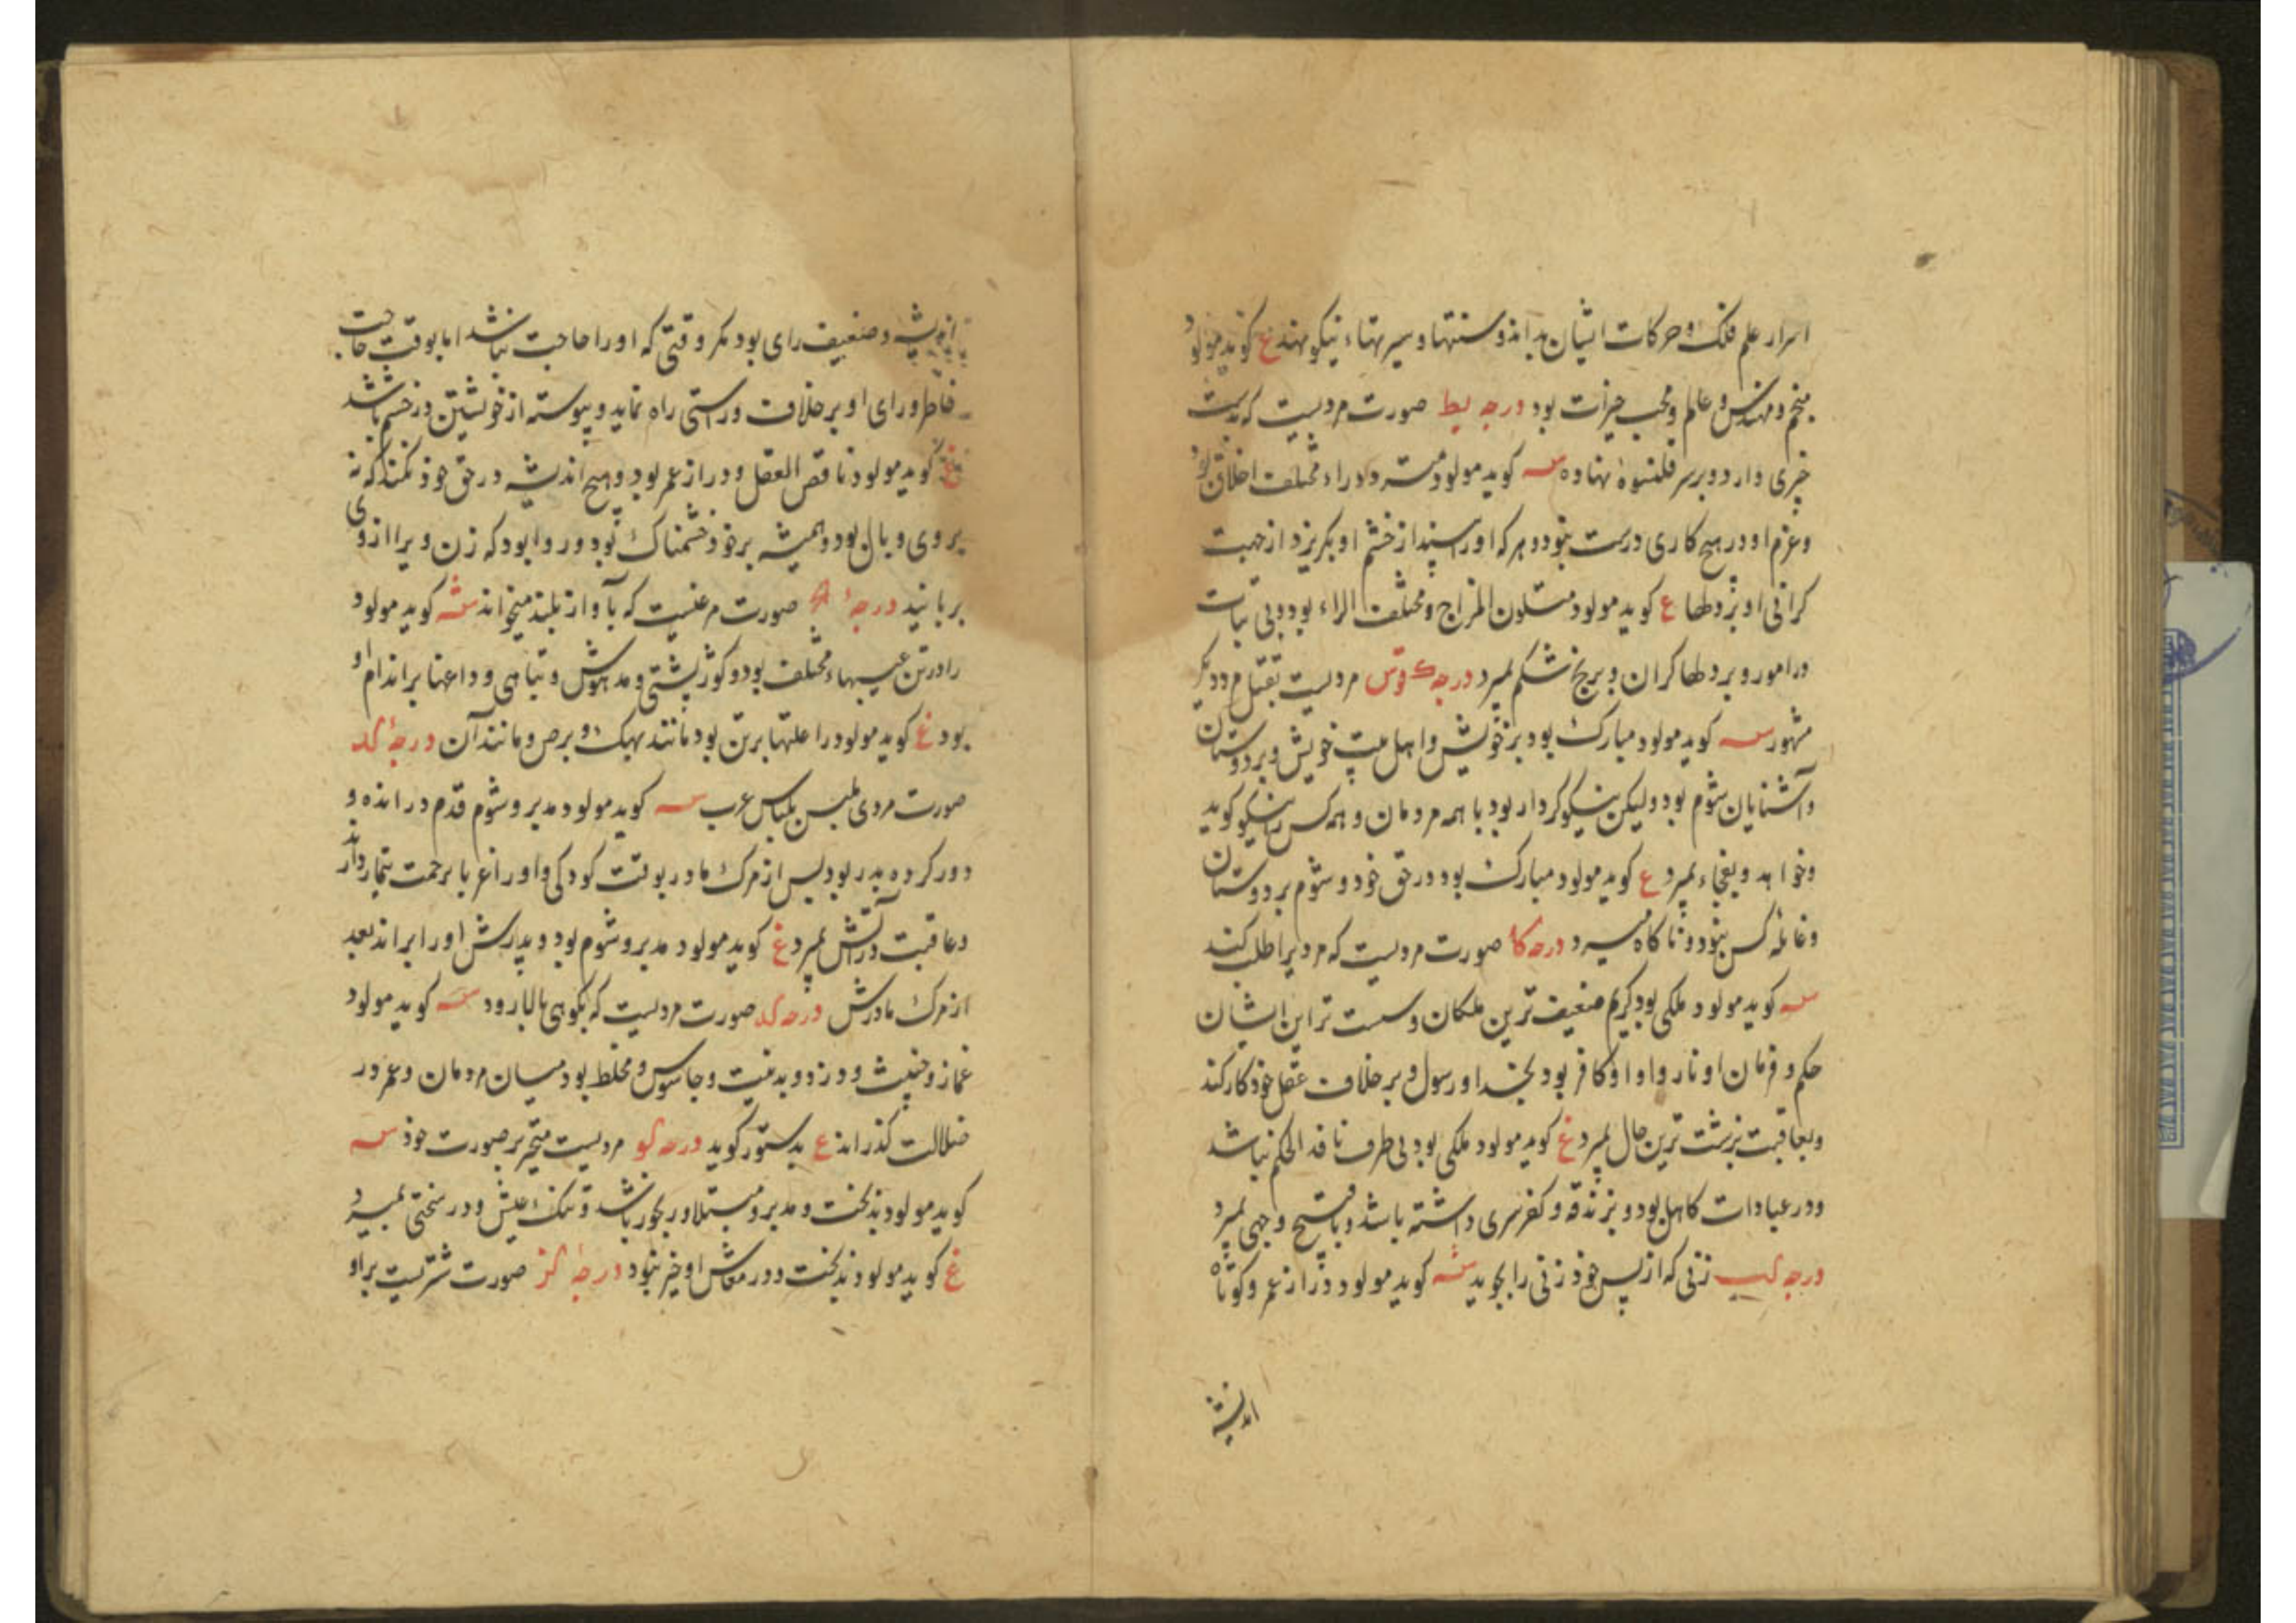 اسرار علم فلک و حرکات ایشان بداند و سنتها و سیرتهاء نیکو نهد غ کوید مولود
منجم و مهندس و عالم و محب خیرات بود درجه یط صورت مردیست که بدست
چیزی دارد و بر سر قلنسوهٔ نهاده س کوید مولود مستر دد راء مختلف اخلاق بود
و عزم او در هیچ کاری درست نبود و هر که او را بیند از خشم او بکریزد از جهت
کرانی او بر دلها ع کوید مولود متلون المزاج و مختلف الراء بود و بی ثبات
در امور و بر دلها کران و برنج شکم بمیرد درجه ک قوس مردیست بقتل مرد دیکر
مشهور س کوید مولود مبارک بود بر خویش و اهل بیت خویش و بر دوستان
و آشنایان شوم بود ولیکن نیکو کردار بود با همه مردمان و همه کس را نیکو کوید
و خواهد و بفجاء بمیرد ع کوید مولود مبارک بود در حق خود و شوم بر دوستان
و غائله کس نبود و ناکاه میرد درجه کا صورت مردیست که مردیرا طلب کند
س کوید مولود ملکی بود کریم ضعیف ترین ملکان و سست تر این ایشان
حکم و فرمان او نا روا و او کافر بود بخدا و رسول و بر خلاف عقل خود کار کند
و بعاقبت بزشت ترین حال بمیرد غ کوید مولود ملکی بود بی طرف نافذ الحکم نباشد
و در عبادات کاهل بود و بزندقه و کفر سری داشته باشد و باقبح وجهی بمیرد
درجه کب زنی که از پس خود زنی را بجوید س کوید مولود دراز عمر و کوتاه
اندیشه
اندیشه و ضعیف رای بود مکر وقتی که او را حاجت نباشد اما بوقت حاجت
خاطر و رای او بر خلاف و راستی راه نماید و پیوسته از خویشتن در خشم باشد
غ کوید مولود ناقص العقل و دراز عمر بود و هیچ اندیشه در حق خود نکند که نه
بر وی وبال بود و همیشه بر خود خشمناک بود و روا بود که زن ویرا از وی
بربانید درجهٔ صورت مرغیست که بآواز بلند میخواند س کوید مولود
را در تن عیبهاء مختلف بود و کوژ پشتی و مدهوش و تباهی و داغها بر اندام او
بود غ کوید مولود را علتها بر تن بود مانند بهک و برص و مانند آن درجهٔ کد
صورت مردی ملبس بلباس عرب س کوید مولود مدبر و شوم قدم در انده و
دور کرده پدر بود پس از مرک مادر بوقت کودکی و او را غربا برحمت تیمار دارند
و عاقبت در آتش بمیرد غ کوید مولود مدبر و شوم بود و پدرش او را براند بعد
از مرک مادرش درجه که صورت مردیست که بکوهی بالا رود س کوید مولود
غماز و خبیث و دزد و بدنیت و جاسوس و مخلط بود میسان مردمان و عمر در
ضلالت کذراند ع بدستور کوید درجه کو مردیست متحیر بر صورت خود س
کوید مولود بدبخت و مدبر و مبتلا و رنجور باشد و تنک عیش و در سختی بمیرد
غ کوید مولود بدبخت و در معاش او خیر نبود درجهٔ کز صورت شتریست بر او